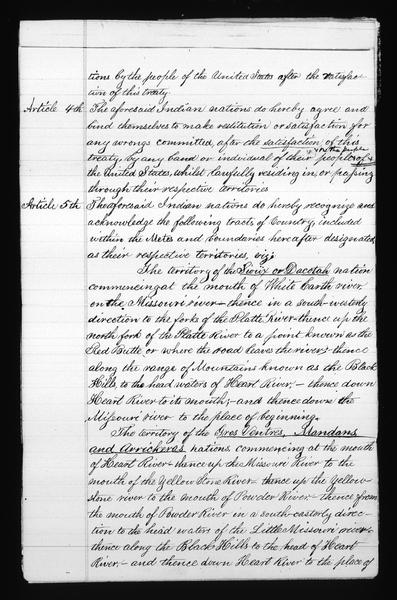 tions by the people of the United States after the ratifica-
tion of this treaty
Article 4th The aforesaid Indian nations do hereby agree and
bind themselves to make restitution or satisfaction for
any wrongs committed, after the satisfaction of this
treaty, by any band or individual of their people, on the people of
the United States, whilst lawfully residing in, or passing
through their respective territories
Article 5th The aforesaid Indian nations do hereby recognize and
acknowledge the following tracts of Country, included
within the Metes and boundaries hereafter designated,
as their respective territories, viz:
The territory of the Sioux or Dacotah nation
commencing at the mouth of White Earth river
on the Missouri river – thence in a south-westerly
direction to the forks of the Platte River – thence up the
north fork of the Platte River to a point known as the
Red Butte or where the road leaves the river – thence
along the range of Mountains known as the Black
Hills, to the head waters of Heart River, – thence down
Heart River to its mouth, – and thence down the
Missouri river to the place of beginning.
The territory of the Gros Ventres, Mandans,
and Arrickeras nations, commencing at the mouth
of Heart River – thence up the Missouri River to the
mouth of the Yellow Stone River – thence up the Yellow-
stone river to the mouth of Powder River – thence from
the mouth of Powder River in a south-easterly direc-
tion to the head waters of the Little Missouri river –
thence along the Black Hills to the head of Heart
River, – and thence down Heart River to the place of